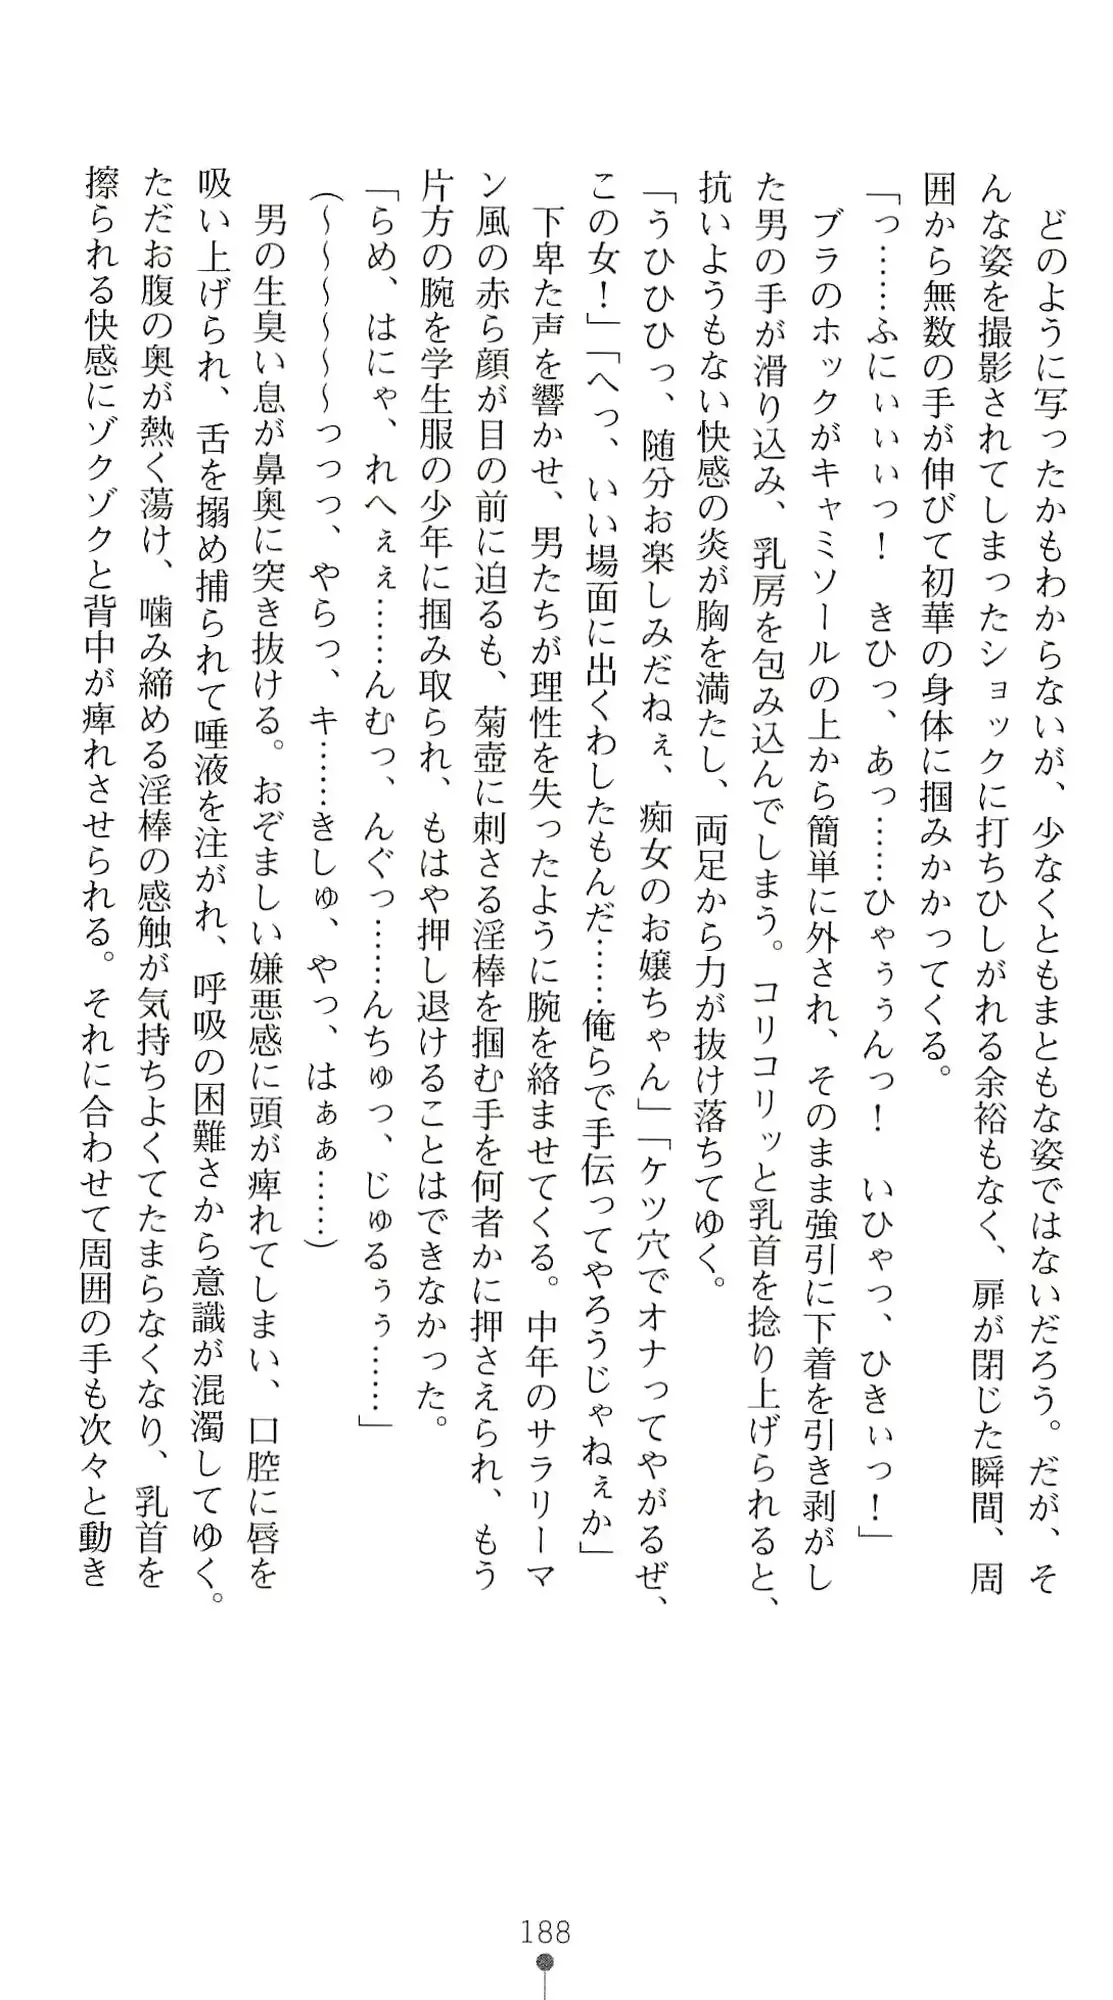 どのように写ったかもわからないが、少なくともまともな姿ではないだろう。だが、そ
んな姿を撮影されてしまったショックに打ちひしがれる余裕もなく、扉が閉じた瞬間、周
囲から無数の手が伸びて初華の身体に掴みかかってくる。
「っ……ふにぃぃぃっ！　きひっ、あっ……ひゃぅぅんっ！　いひゃっ、ひきぃっ！」
ブラのホックがキャミソールの上から簡単に外され、そのまま強引に下着を引き剥がし
た男の手が滑り込み、乳房を包み込んでしまう。コリコリッと乳首を捻り上げられると、
抗いようもない快感の炎が胸を満たし、両足から力が抜け落ちてゆく。
「うひひひっ、随分お楽しみだねぇ、痴女のお嬢ちゃん」「ケツ穴でオナってやがるぜ、
この女！」「へっ、いい場面に出くわしたもんだ……俺らで手伝ってやろうじゃねぇか」
下卑た声を響かせ、男たちが理性を失ったように腕を絡ませてくる。中年のサラリーマ
ン風の赤ら顔が目の前に迫るも、菊壺に刺さる淫棒を掴む手を何者かに押さえられ、もう
片方の腕を学生服の少年に掴み取られ、もはや押し退けることはできなかった。
「らめ、はにゃ、れへぇぇ……んむっ、んぐっ……んちゅっ、じゅるぅぅ……」
（～～～～～～っっっ、やらっ、キ……きしゅ、やっ、はぁぁ……）
男の生臭い息が鼻奥に突き抜ける。おぞましい嫌悪感に頭が痺れてしまい、口腔に唇を
吸い上げられ、舌を搦め捕られて唾液を注がれ、呼吸の困難さから意識が混濁してゆく。
ただお腹の奥が熱く蕩け、噛み締める淫棒の感触が気持ちよくてたまらなくなり、乳首を
擦られる快感にゾクゾクと背中が痺れさせられる。それに合わせて周囲の手も次々と動き
188